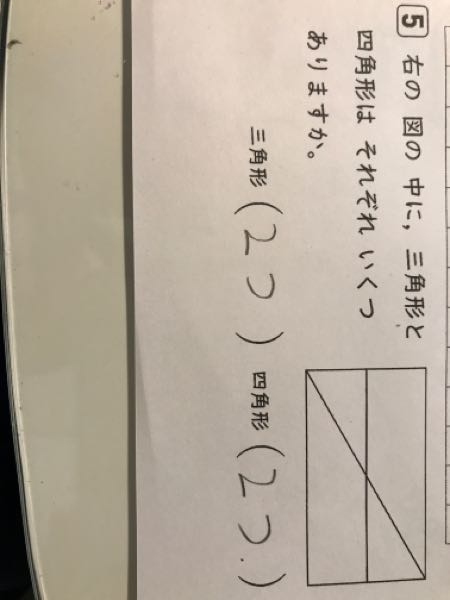 5 右の 図の 中に, 三角形と
四角形は それぞれ いくつ
ありますか。
三角形 ( 2つ ) 四角形 ( 2つ. )